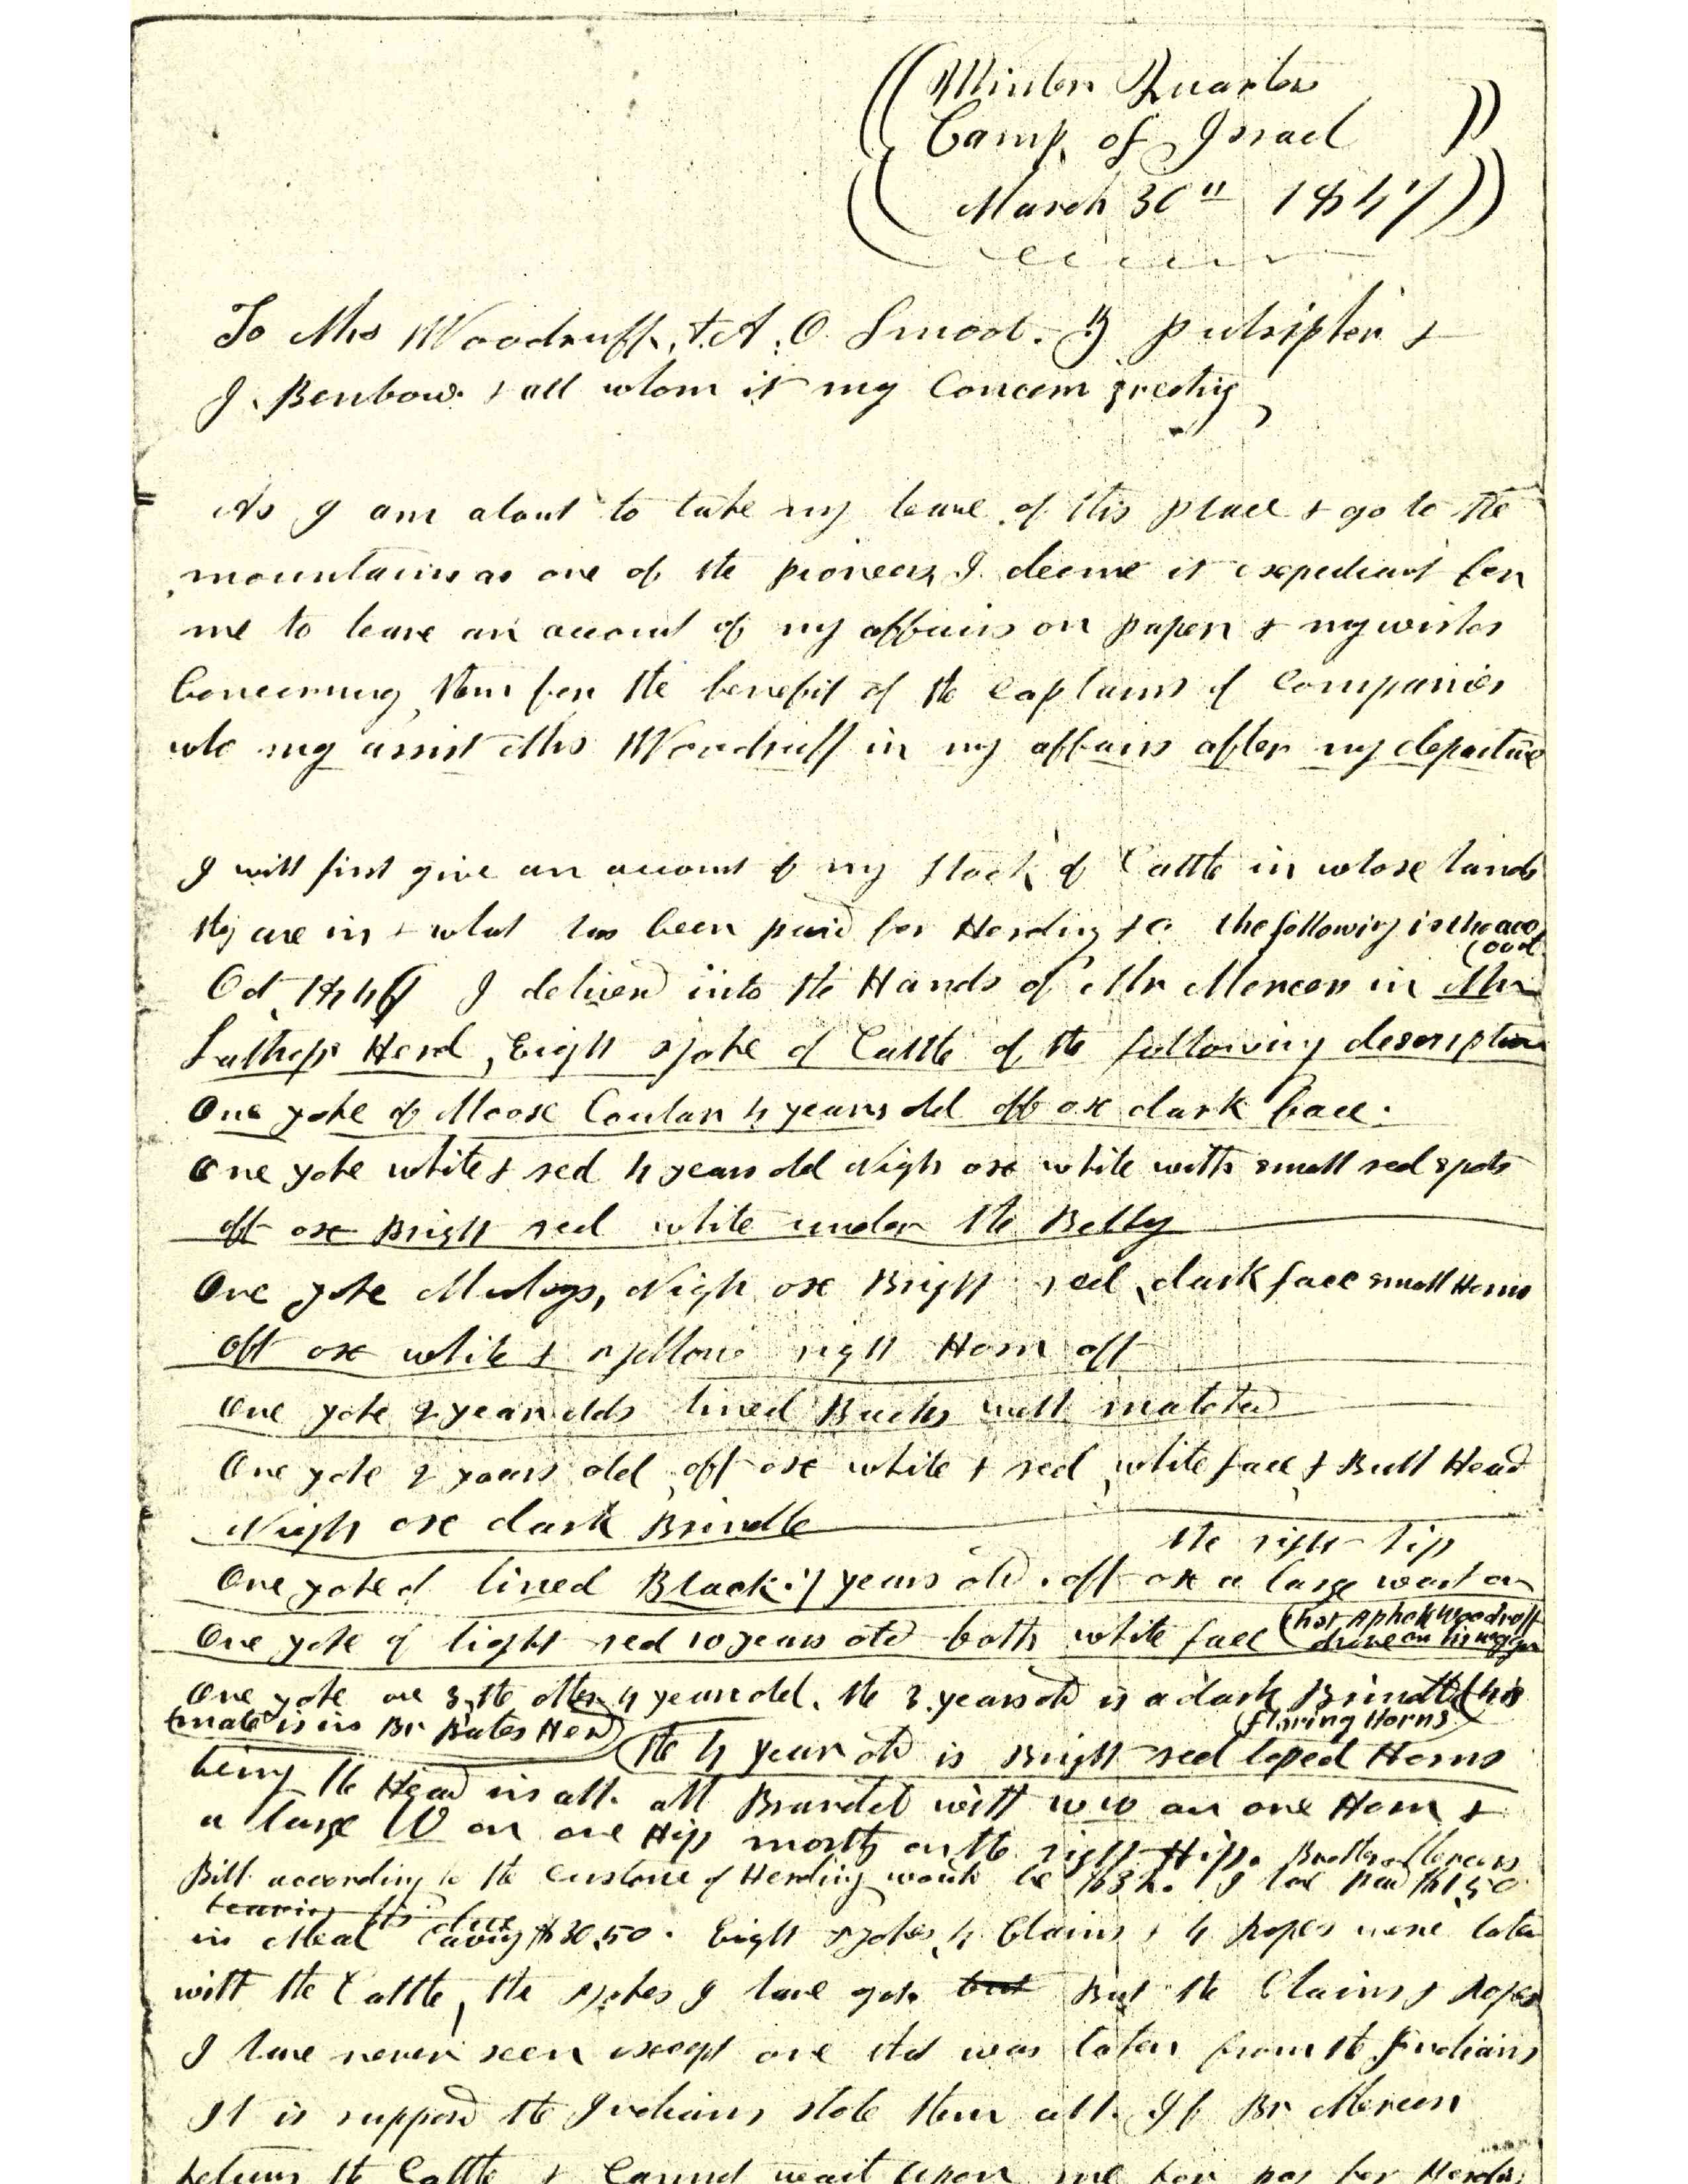 Winter Quarters
Camp of Israel
March 30" 1847
To Mrs Woodruff, & A. O. Smoot. Z pulsipher &
J. Benbow. & all whom it my Concern greetig,
As I am about to take my leave of this place & go to the
mountains as one of the pioneers, I deeme it expediant for
me to leave an account of my affairs on paper & my wishes
Concerning them for the benefit of the Captains of Companies
who my assist Mrs Woodruff in my affairs after my departure
I will first give an account of my Stock of Cattle in whose hands
they are in & what has been paid for Herding &c the following is the acc
ount
Oct 1846 I deliverd into the Hands of Mr Mercer in Mr
Lathrops Herd, Eight yoke of Cattle of the following description
One yoke of Moose Couler 4 years old off ox dark face.
One yoke white & red 4 years old Nigh ox white with small red spots
off ox Bright red white under the Belly
One yoke Muleys, Nigh ox Bright red, dark face small Horns
off ox white & yellow right Horn off
One yoke 2 year olds lined Backs well matched
One yoke 2 years old, off ox white & red, white face & Bull Head
Nigh ox dark Brindle
the right hip
One yoke of lined Black 7 years old. off ox a large wart on
One yoke of light red 10 years old both white face (that Aphek Woodruff
drove on his waggon
One yoke one 3, the other 4 year old. the 3 years old is a dark Brindle (his
mate is in Br Bates Herd)
flaring Horns)
the 4 year old is Bright red loped Horns
being 16 Head in all. all Branded with W W on one Horn &
a large W on one Hip mostly on the right Hip. Brother Mercers
Bill according to the Custome of Herding would be $32. I have paid $1,50
leaving his due
in Meal leavig $30,50. Eight yokes, 4 Chains & 4 ropes were taken
with the Cattle, the yokes I have got. but But the Chains & ropes
I have never seen except one that was taken from the Indians
It is supposed the Indians stole them all. If Br Mercer
returns the Cattle & Cannot wait upon me for pay for Herding